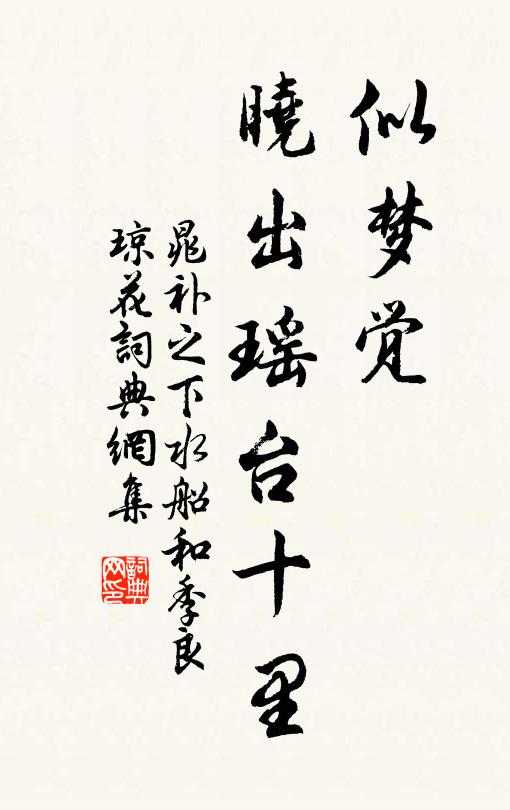 似梦觉
曉出瑶台十里
晁补之下水船和季良
琼花詞典網集
詞典
网印